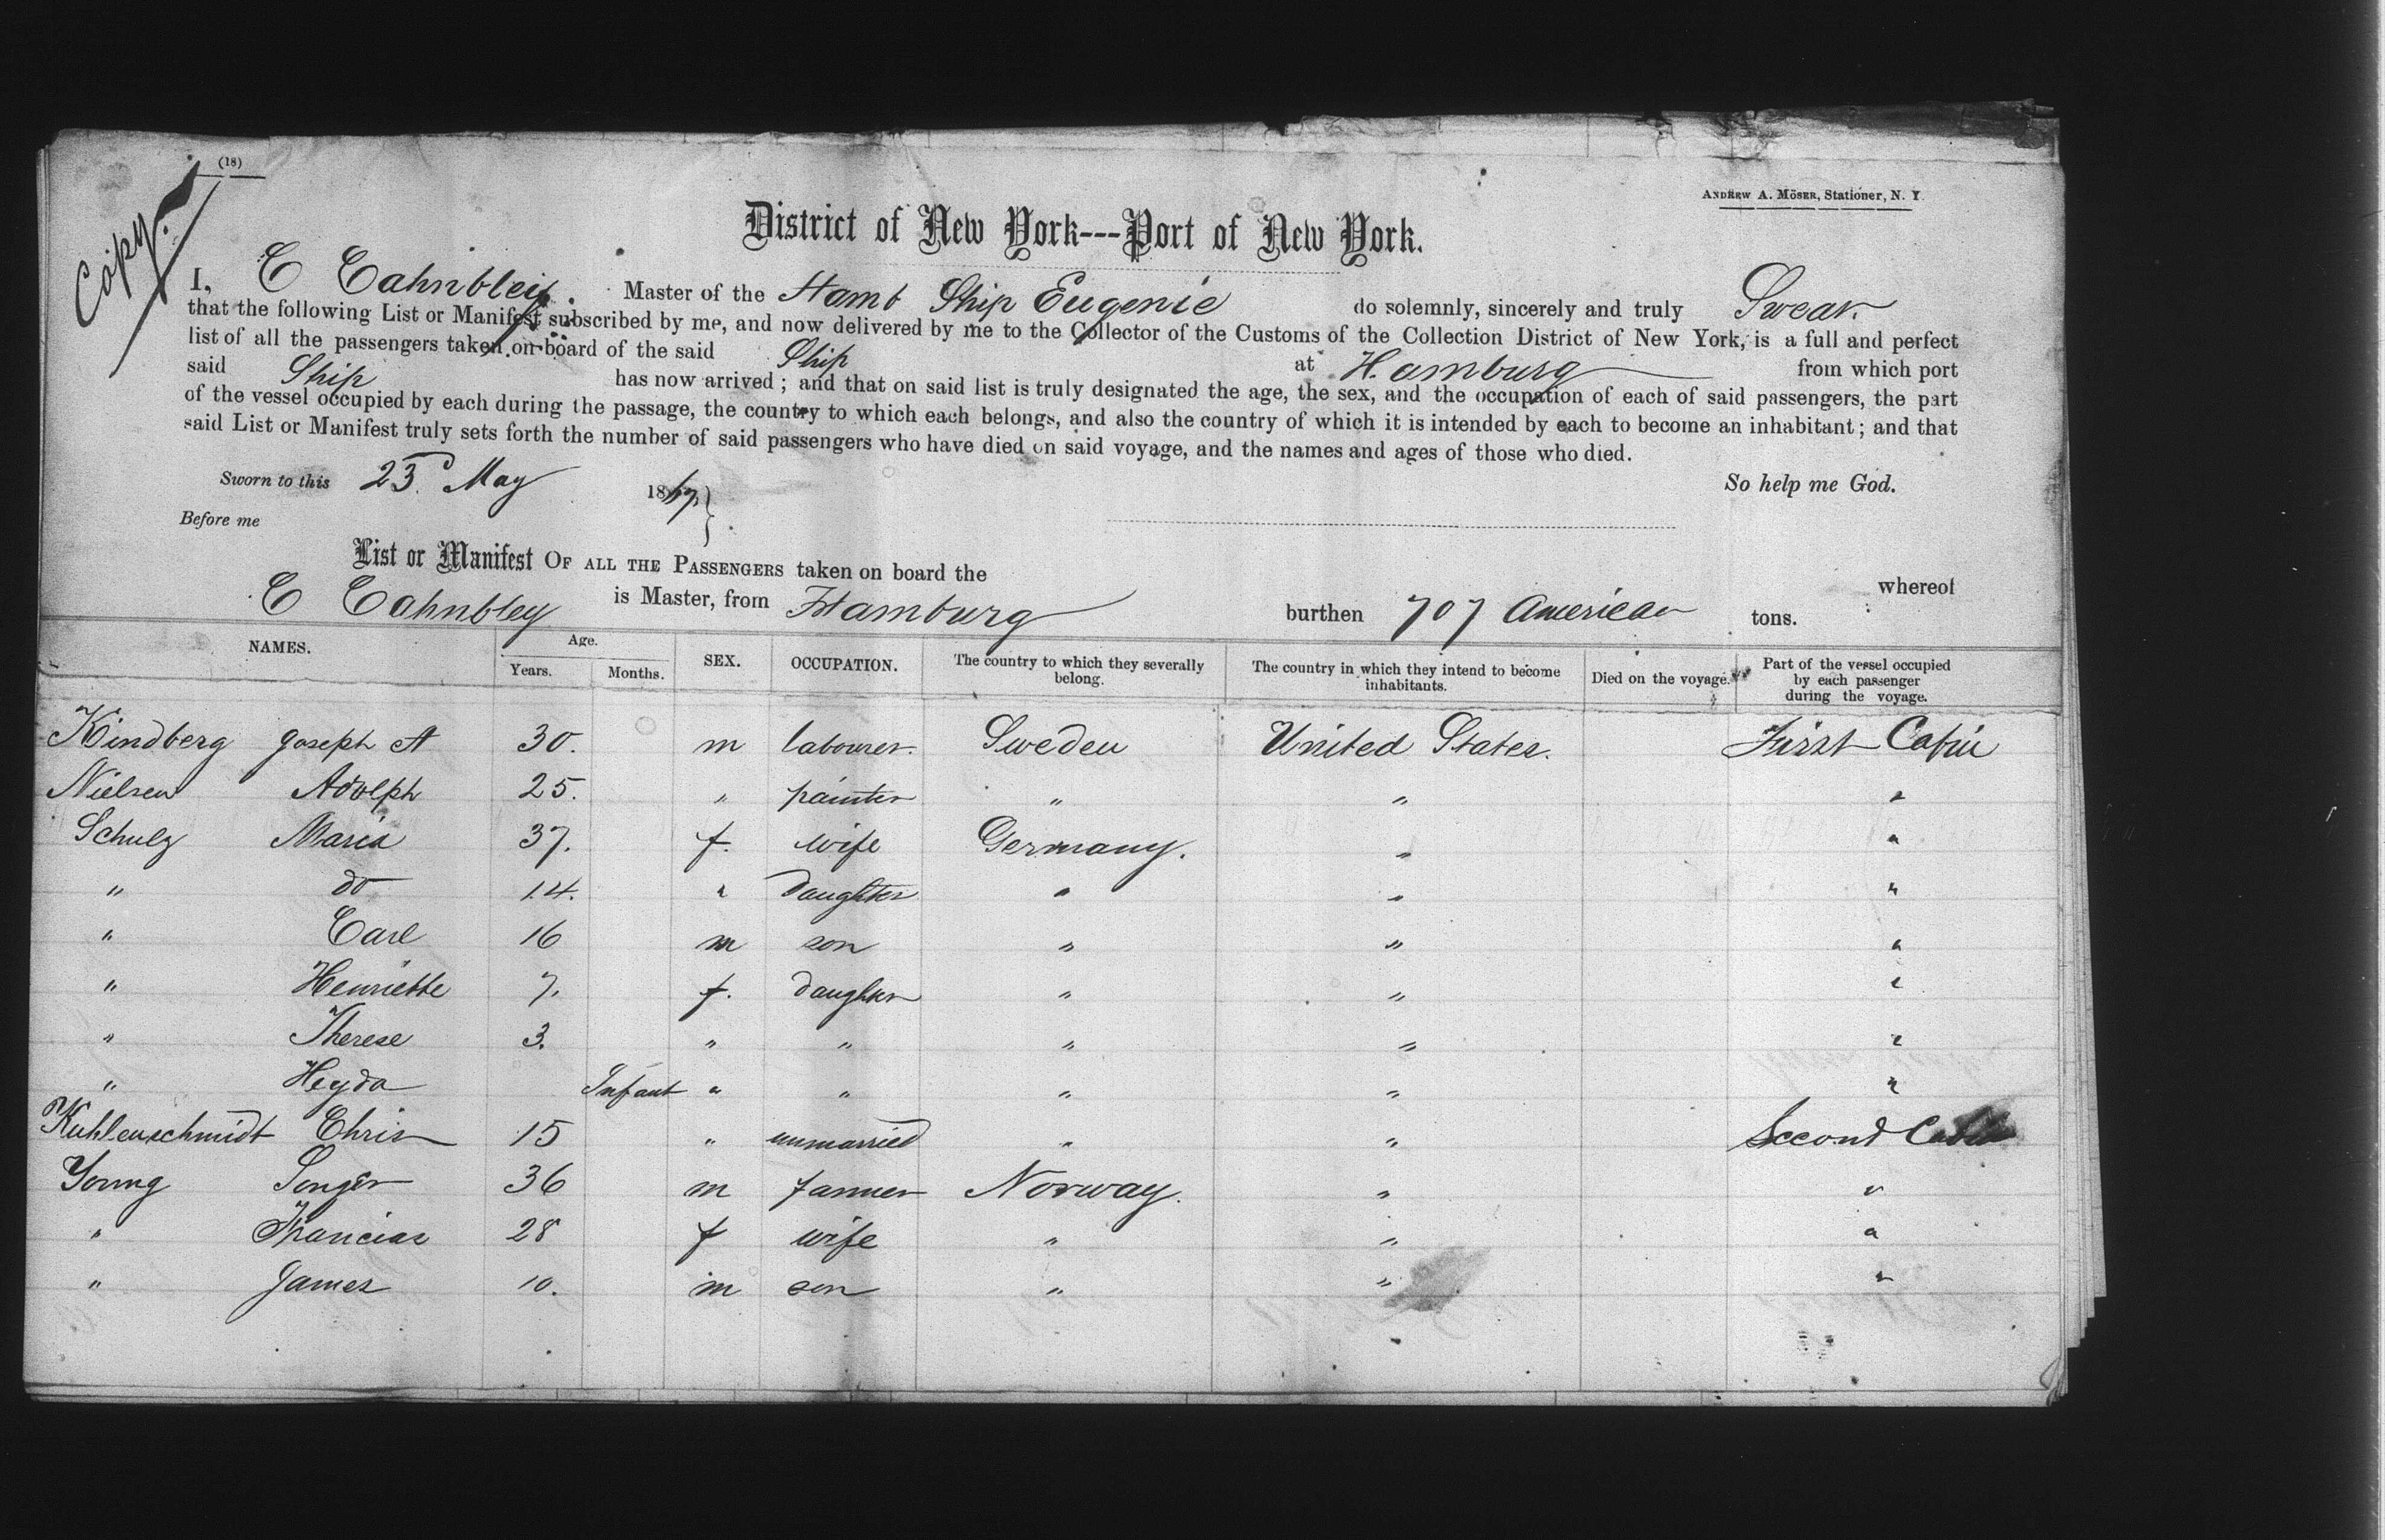 (18)
Copy.
ANDREW A. MÖSER, Stationer, N. Y.
District of New York---Port of New York.
I, C Cahnbley. Master of the Hamb Ship Eugenie do solemnly, sincerely and truly Swear
that the following List or Manifest subscribed by me, and now delivered by me to the Collector of the Customs of the Collection District of New York, is a full and perfect
list of all the passengers taken on board of the said Ship at Hamburg from which port
said Ship has now arrived; and that on said list is truly designated the age, the sex, and the occupation of each of said passengers, the part
of the vessel occupied by each during the passage, the country to which each belongs, and also the country of which it is intended by each to become an inhabitant; and that
said List or Manifest truly sets forth the number of said passengers who have died on said voyage, and the names and ages of those who died.
Sworn to this 23d May 1867 So help me God.
Before me
List or Manifest OF ALL THE PASSENGERS taken on board the whereof
C Cahnbley is Master, from Hamburg burthen 707 American tons.
NAMES. Age. Years. Months. SEX. OCCUPATION. The country to which they severally belong. The country in which they intend to become inhabitants. Died on the voyage. Part of the vessel occupied by each passenger during the voyage.
Kindberg Joseph A 30. m labourer. Sweden United States. First Cabin
Nielsen Adolph 25. " painter " " "
Schulz Maria 37. f. wife Germany. " "
" do 14. " daughter " " "
" Carl 16 m son " " "
" Henriette 7. f. daughter " " "
" Therese 3. " " " " "
" Heyda Infant " " " " "
Kuhlenschmidt Chris 15 " unmarried " " Second Cabin
Young Songer 36 m farmer Norway. " "
" Francias 28 f wife " " "
" James 10. m son " " "